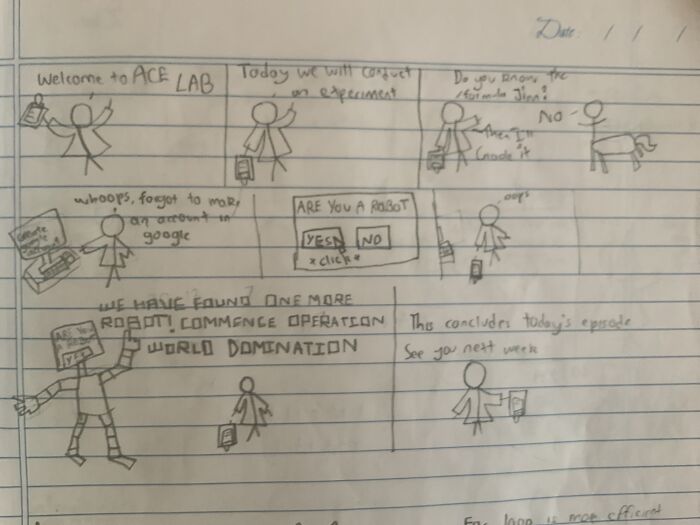 Date: / / /
Welcome to ACE LAB
Today we will conduct
an experiment
Do you know the
formula Jinn?
NO
Then I'll
it
whoops, forgot to make
an account in
google
ARE YOU A ROBOT
YES
NO
*click*
oops
WE HAVE FOUND ONE MORE
ROBOT! COMMENCE OPERATION
WORLD DOMINATION
ARE YOU
A ROBOT
YES
This concludes today's episode
See you next week
loop is more efficient